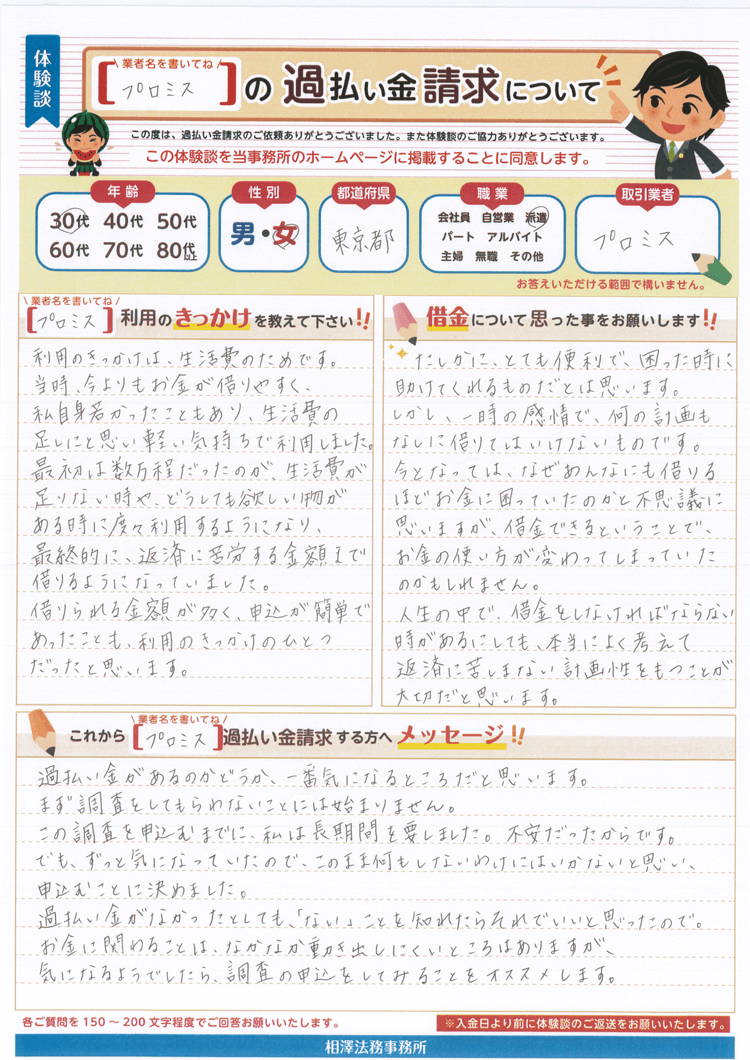 体験談
\ 業者名を書いてね /
[プロミス]の過払い金請求について
この度は、過払い金請求のご依頼ありがとうございました。また体験談のご協力ありがとうございます。
この体験談を当事務所のホームページに掲載することに同意します。
年齢
30代 40代 50代
60代 70代 80代以上
性別
男・女
都道府県
東京都
職業
会社員 自営業 派遣
パート アルバイト
主婦 無職 その他
取引業者
プロミス
お答えいただける範囲で構いません。
\ 業者名を書いてね /
[プロミス]利用のきっかけを教えて下さい!!
利用のきっかけは、生活費のためです。
当時、今よりもお金が借りやすく、
私自身若かったこともあり、生活費の
足しにと思い軽い気持ちで利用しました。
最初は数万程だったのが、生活費が
足りない時や、どうしても欲しい物が
ある時に度々利用するようになり、
最終的に、返済に苦労する金額まで
借りるようになっていました。
借りられる金額が多く、申込が簡単で
あったことも、利用のきっかけのひとつ
だったと思います。
借金について思った事をお願いします!!
たしかに、とても便利で、困った時に
助けてくれるものだとは思います。
しかし、一時の感情で、何の計画も
なしに借りてはいけないものです。
今となっては、なぜあんなにも借りる
ほどお金に困っていたのかと不思議に
思いますが、借金できるということで、
お金の使い方が変わってしまっていた
のかもしれません。
人生の中で、借金をしなければならない
時があるにしても、本当によく考えて
返済に苦しまない計画性をもつことが
大切だと思います。
\ 業者名を書いてね /
これから[プロミス]過払い金請求する方へメッセージ!!
過払い金があるのかどうか、一番気になるところだと思います。
まず調査をしてもらわないことには始まりません。
この調査を申込むまでに、私は長期間を要しました。不安だったからです。
でも、ずっと気になっていたので、このまま何もしないわけにはいかないと思い、
申込むことに決めました。
過払い金がなかったとしても、「ない」ことを知れたらそれでいいと思ったので。
お金に関わることは、なかなか動き出しにくいところはありますが、
気になるようでしたら、調査の申込をしてみることをオススメします。
各ご質問を150～200文字程度でご回答お願いいたします。
※入金日より前に体験談のご返送をお願いいたします。
相澤法務事務所